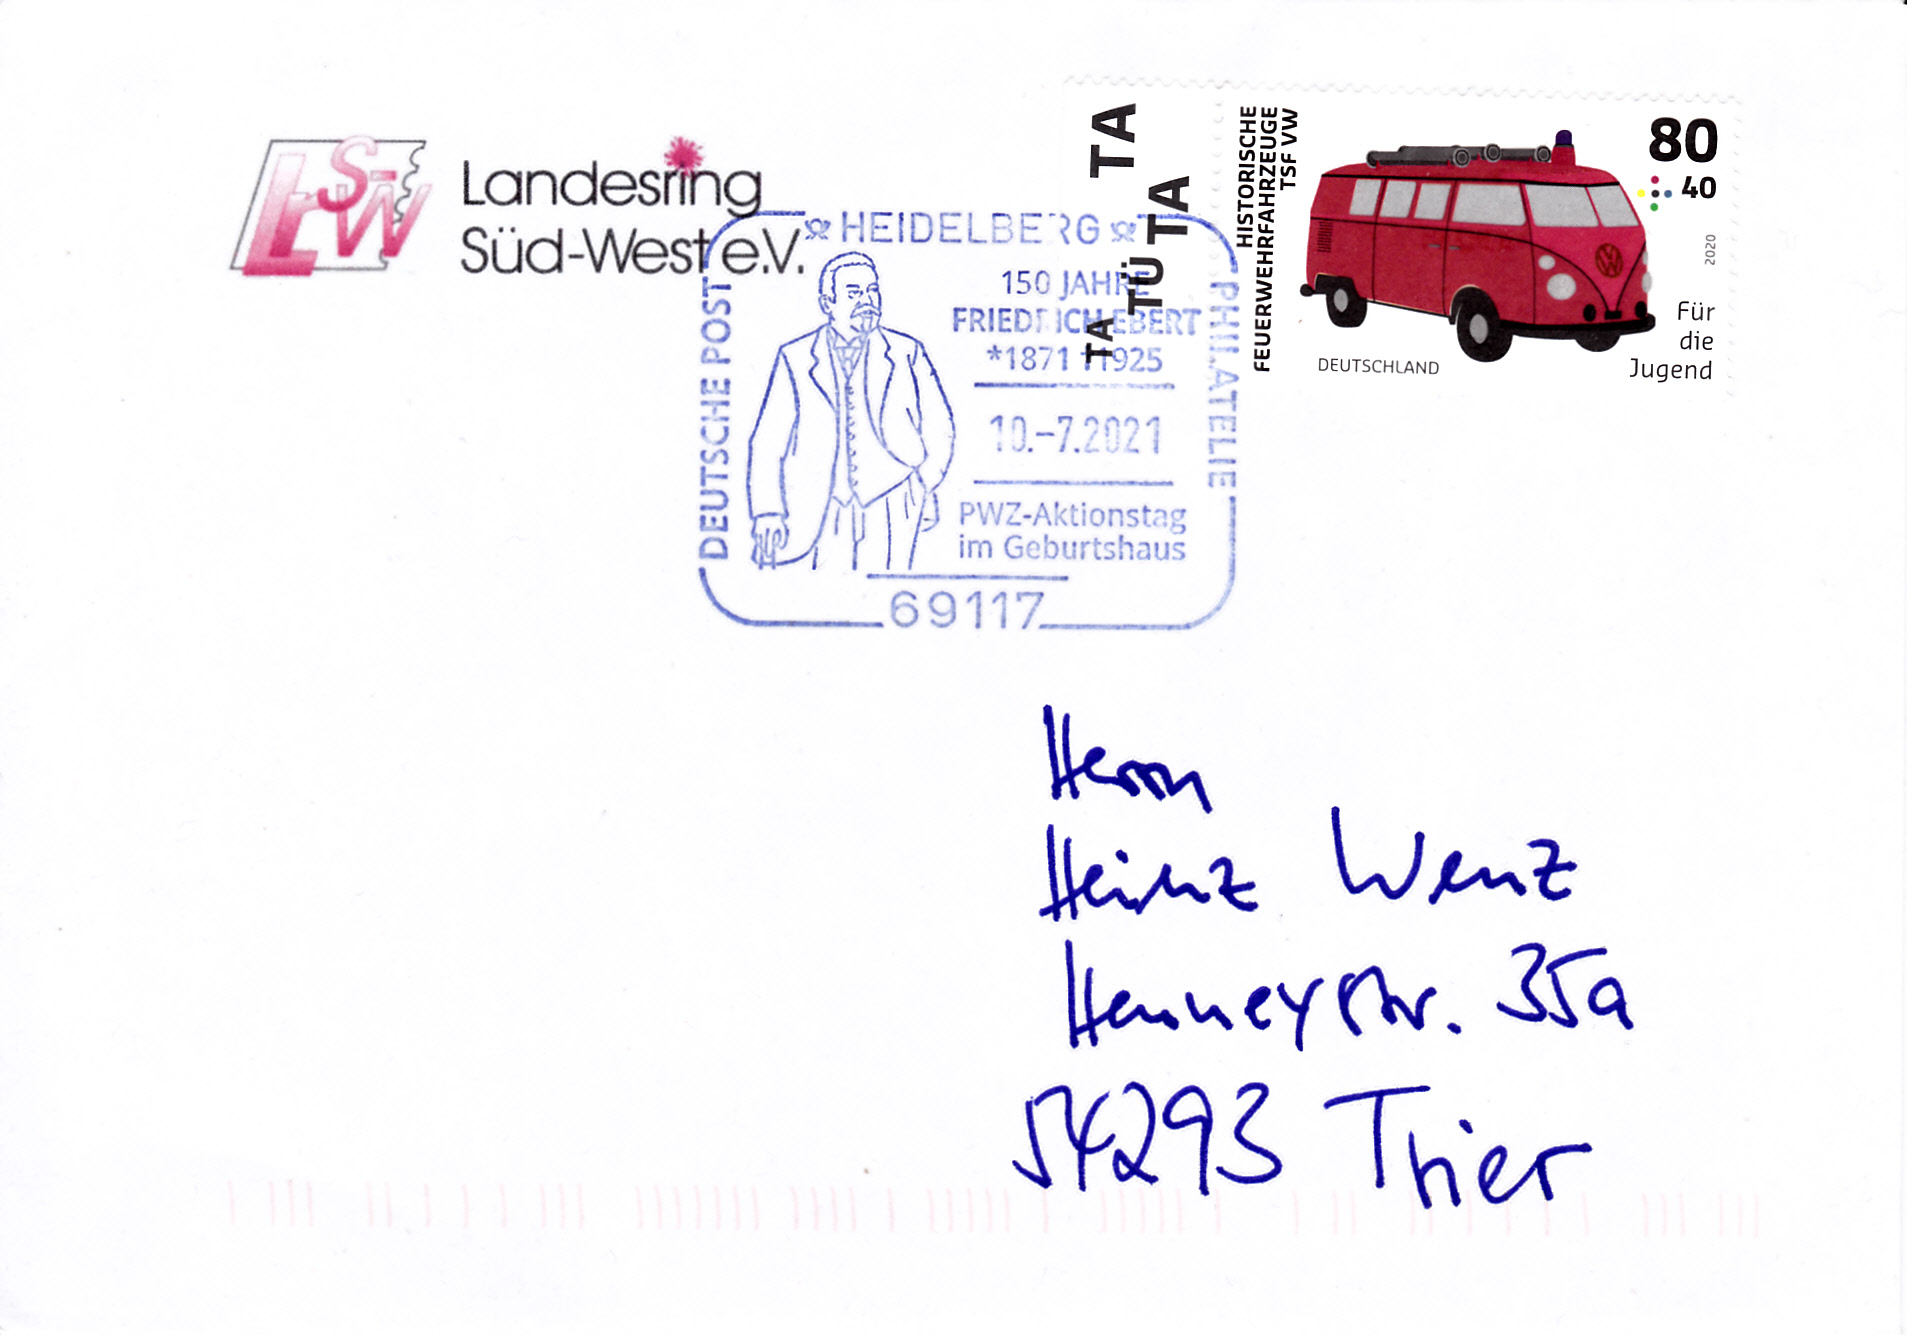 LSW
Landesring
Süd-West e.V.
TA TÜ TA TA
HISTORISCHE
FEUERWEHRFAHRZEUGE
TSF VW
80
40
2020
Für
die
Jugend
DEUTSCHLAND
HEIDELBERG
DEUTSCHE POST
PHILATELIE
150 JAHRE
FRIEDRICH EBERT
*1871 †1925
10.-7.2021
PWZ-Aktionstag
im Geburtshaus
69117
Herrn
Heinz Wenz
Henneystr. 35a
54293 Trier